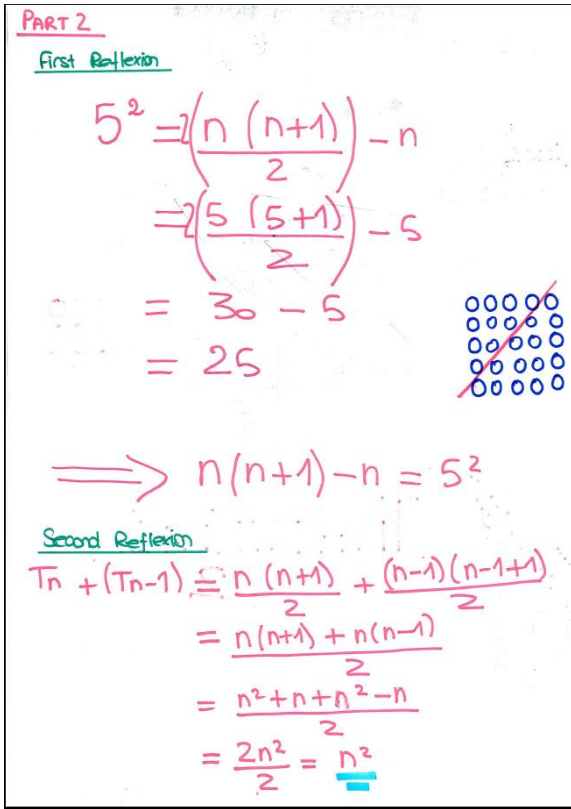 PART 2
First Reflexion
5² = 2(n (n+1)/2) - n
= 2(5 (5+1)/2) - 5
= 30 - 5
= 25
⟹ n(n+1)-n = 5²
Second Reflexion
Tn + (Tn-1) = n (n+1)/2 + (n-1)(n-1+1)/2
= n(n+1) + n(n-1)/2
= n²+n+n²-n/2
= 2n²/2 = n²